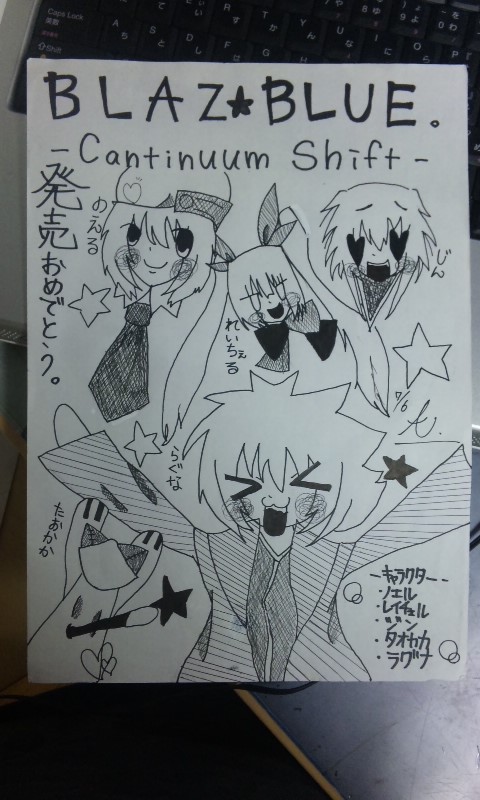 BLAZ★BLUE。
-Cantinuum Shift-
発売おめでとう。
のえる
じん
れいちぇる
7/6
らぐな
たおかか
-キャラクター-
・ノエル
・レイチェル
・ジン
・タオカカ
・ラグナ